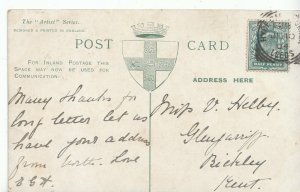 The "Artist" Series.
DESIGNED & PRINTED IN ENGLAND.
POST CARD
FOR INLAND POSTAGE THIS
SPACE MAY NOW BE USED FOR
COMMUNICATION.
ADDRESS HERE
HALF PENNY
Many thanks for
long letter let us
have your address
from with love
Miss V. Helby
Glengarriff
Bickley
Kent.